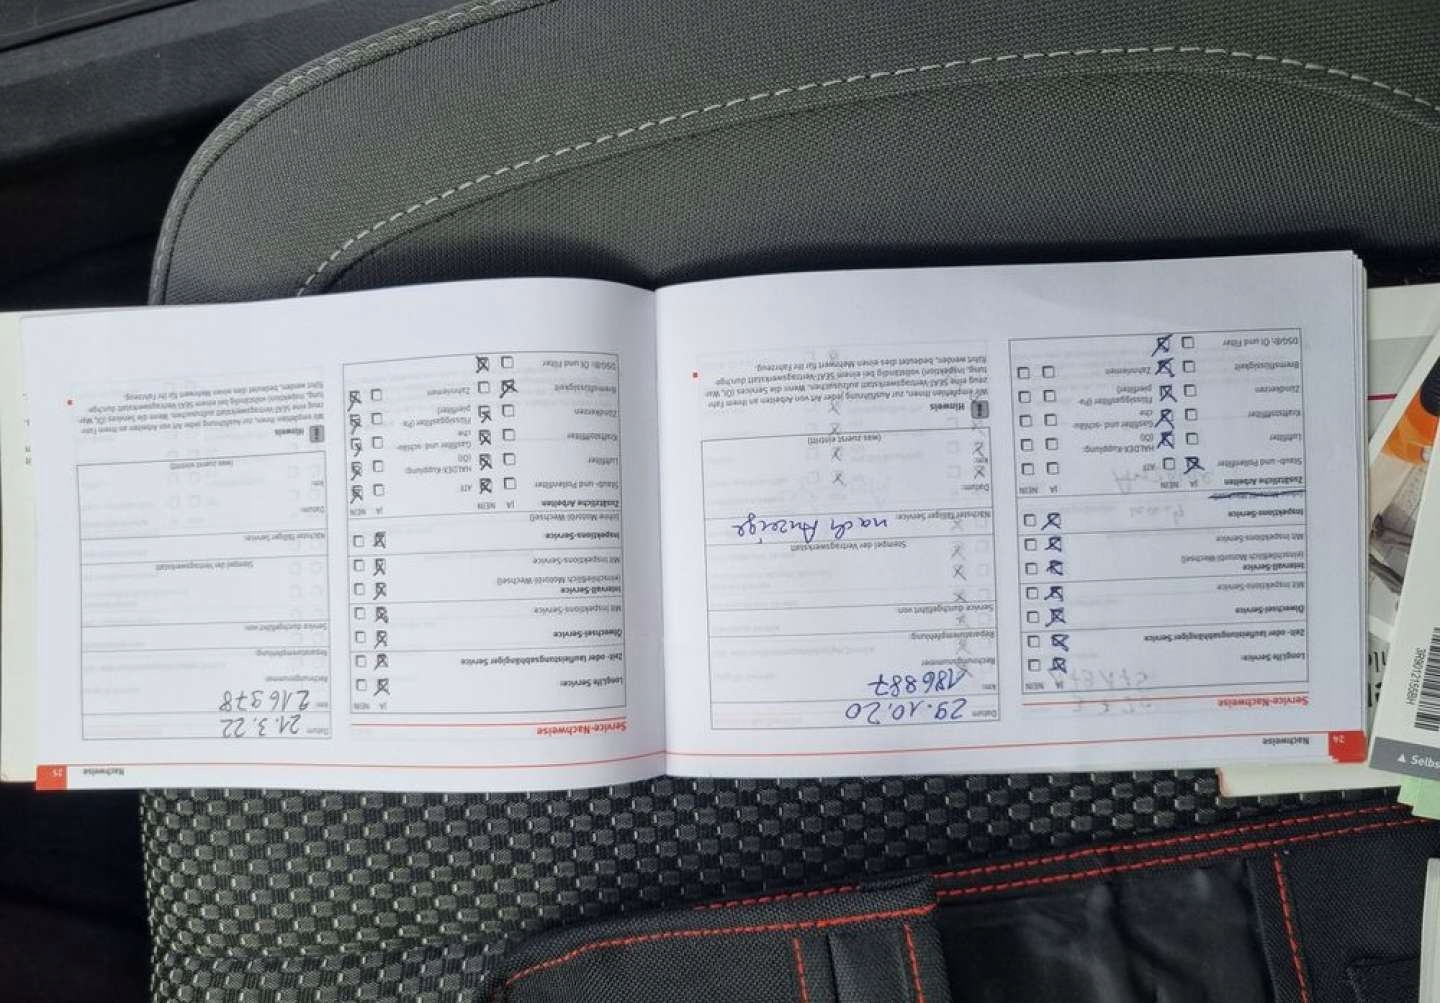 24
Nachweise
Service-Nachweise
JA NEIN
LongLife Service:
Zeit- oder laufleistungsabhängiger Service
Ölwechsel-Service
Mit Inspektions-Service
Intervall-Service
(einschließlich Motoröl-Wechsel)
Mit Inspektions-Service
Inspektions-Service
Zusätzliche Arbeiten
JA NEIN
JA NEIN
Staub- und Pollenfilter
ATF
Luftfilter
HALDEX-Kupplung:
(Öl)
Kraftstofffilter
Gasfilter und -schläu-
che
Zündkerzen
Flüssiggasfilter (Pa-
pierfilter)
Bremsflüssigkeit
Zahnriemen
DSG®: Öl und Filter
Datum
29.10.20
km:
186887
Rechnungsnummer
Reparaturempfehlung:
Service durchgeführt von:
Stempel der Vertragswerkstatt
Nächster fälliger Service:
nach Anzeige
Datum:
km:
(was zuerst eintritt)
Hinweis
Wir empfehlen Ihnen, zur Ausführung jeder Art von Arbeiten an Ihrem Fahr-
zeug eine SEAT-Vertragswerkstatt aufzusuchen. Wenn die Services (Öl, War-
tung, Inspektion) vollständig bei einem SEAT-Vertragswerkstatt durchge-
führt werden, bedeutet dies einen Mehrwert für Ihr Fahrzeug.
Nachweise
25
Service-Nachweise
JA NEIN
LongLife Service:
Zeit- oder laufleistungsabhängiger Service
Ölwechsel-Service
Mit Inspektions-Service
Intervall-Service
(einschließlich Motoröl-Wechsel)
Mit Inspektions-Service
Inspektions-Service
(ohne Motoröl-Wechsel)
Zusätzliche Arbeiten
JA NEIN
JA NEIN
Staub- und Pollenfilter
ATF
Luftfilter
HALDEX-Kupplung:
(Öl)
Kraftstofffilter
Gasfilter und -schläu-
che
Zündkerzen
Flüssiggasfilter (Pa-
pierfilter)
Bremsflüssigkeit
Zahnriemen
DSG®: Öl und Filter
Datum
21.3.22
km:
216378
Rechnungsnummer
Reparaturempfehlung:
Service durchgeführt von:
Stempel der Vertragswerkstatt
Nächster fälliger Service:
Datum:
km:
(was zuerst eintritt)
Hinweis
Wir empfehlen Ihnen, zur Ausführung jeder Art von Arbeiten an Ihrem Fahr-
zeug eine SEAT-Vertragswerkstatt aufzusuchen. Wenn die Services (Öl, War-
tung, Inspektion) vollständig bei einem SEAT-Vertragswerkstatt durchge-
führt werden, bedeutet dies einen Mehrwert für Ihr Fahrzeug.
3R9012155BH
Selbs